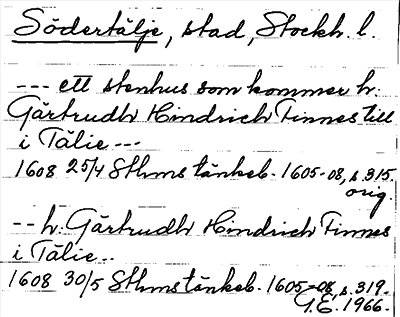 Södertälje, stad, Stockh. l.
--- ett stenhus som kommer h.
Gärtrudh Hindrich Finnes till
i Tälie ---
1608 25/4 Sthms tänkeb. 1605-08, s. 315.
orig.
-- h. Gärtrudh Hindrich Finnes
i Tälie --
1608 30/5 Sthms tänkeb. 1605-08, s. 319.
G.E. 1966.